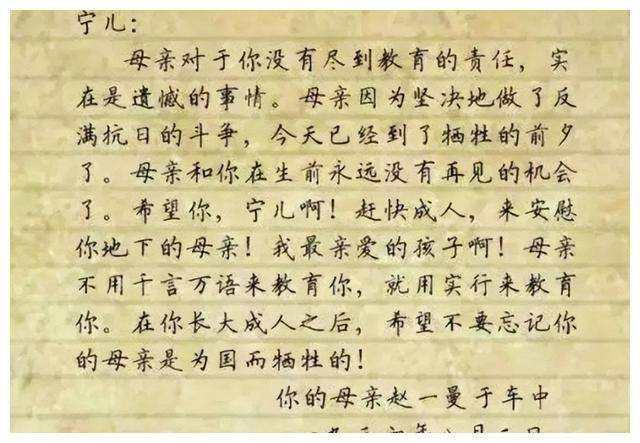 宁儿：
母亲对于你没有尽到教育的责任，实
在是遗憾的事情。母亲因为坚决地做了反
满抗日的斗争，今天已经到了牺牲的前夕
了。母亲和你在生前永远没有再见的机会
了。希望你，宁儿啊！赶快成人，来安慰
你地下的母亲！我最亲爱的孩子啊！母亲
不用千言万语来教育你，就用实行来教育
你。在你长大成人之后，希望不要忘记你
的母亲是为国而牺牲的！
你的母亲赵一曼于车中